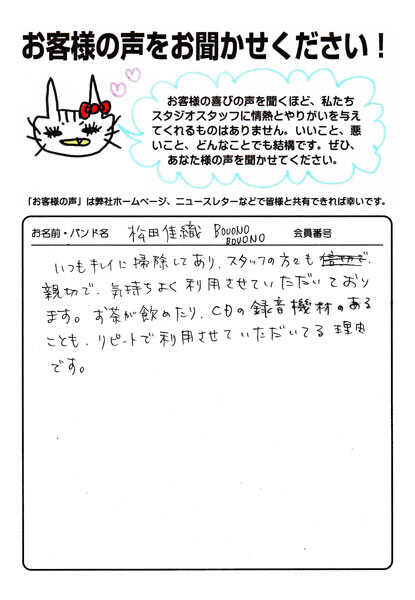 お客様の声をお聞かせください！
お客様の喜びの声を聞くほど、私たち
スタジオスタッフに情熱とやりがいを与え
てくれるものはありません。いいこと、悪
いこと、どんなことでも結構です。ぜひ、
あなた様の声を聞かせてください。
「お客様の声」は弊社ホームページ、ニュースレターなどで皆様と共有できれば幸いです。
お名前・バンド名 松田佳織 BOUONO 会員番号
BOUONO
いつもキレイに掃除してあり、スタッフの方々も
親切で、気持ちよく利用させていただいており
ます。お茶が飲めたり、CDの録音機材のある
ことも、リピートで利用させていただいてる理由
です。